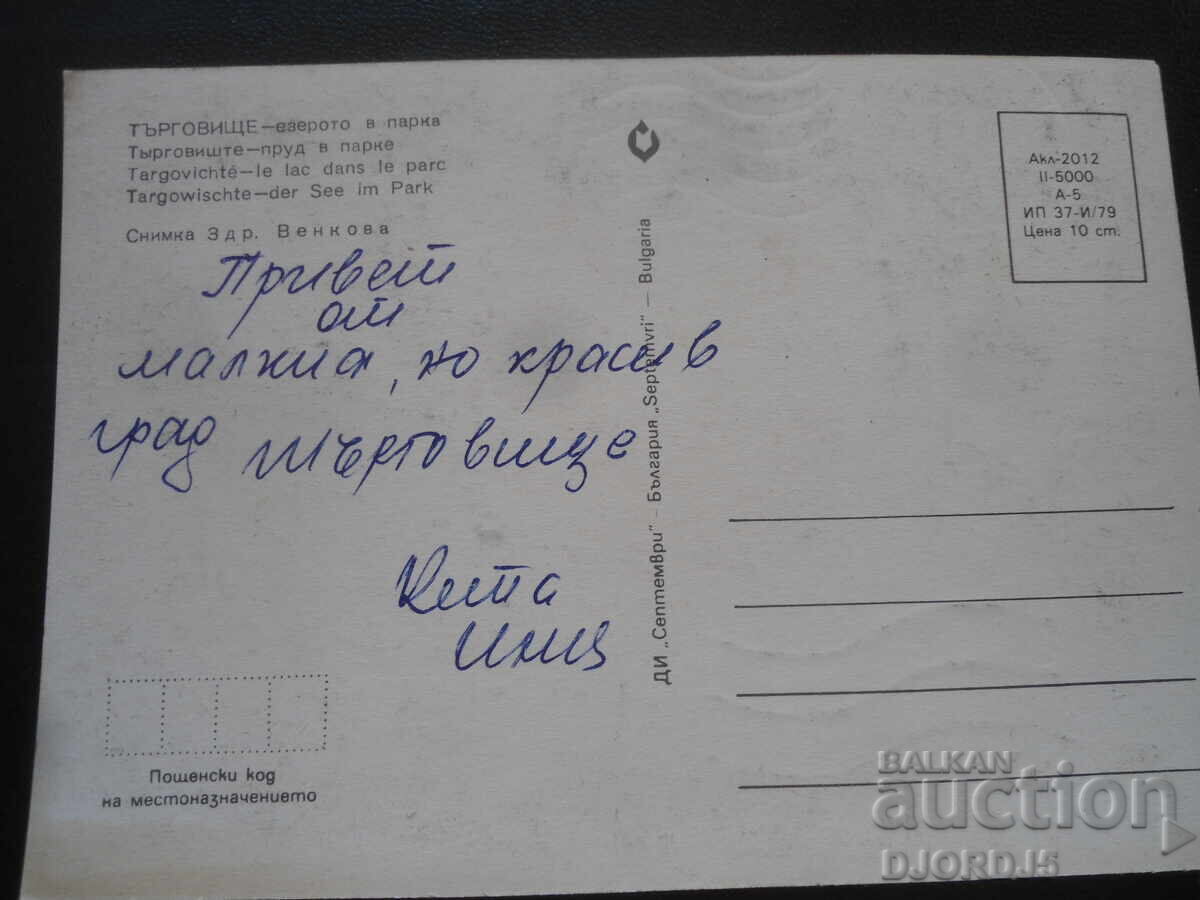 ТЪРГОВИЩЕ—езерото в парка
Тырговиште—пруд в парке
Targovichté—le lac dans le parc
Targowischte—der See im Park
Снимка Здр. Венкова
Привет
от
малкия, но красив
град Търговище
ДИ „Септември" — България „Septemvri" — Bulgaria
Акл-2012
II-5000
А-5
ИП 37-И/79
Цена 10 ст.
Пощенски код
на местоназначението
BALKAN
auction
DJORDJ5